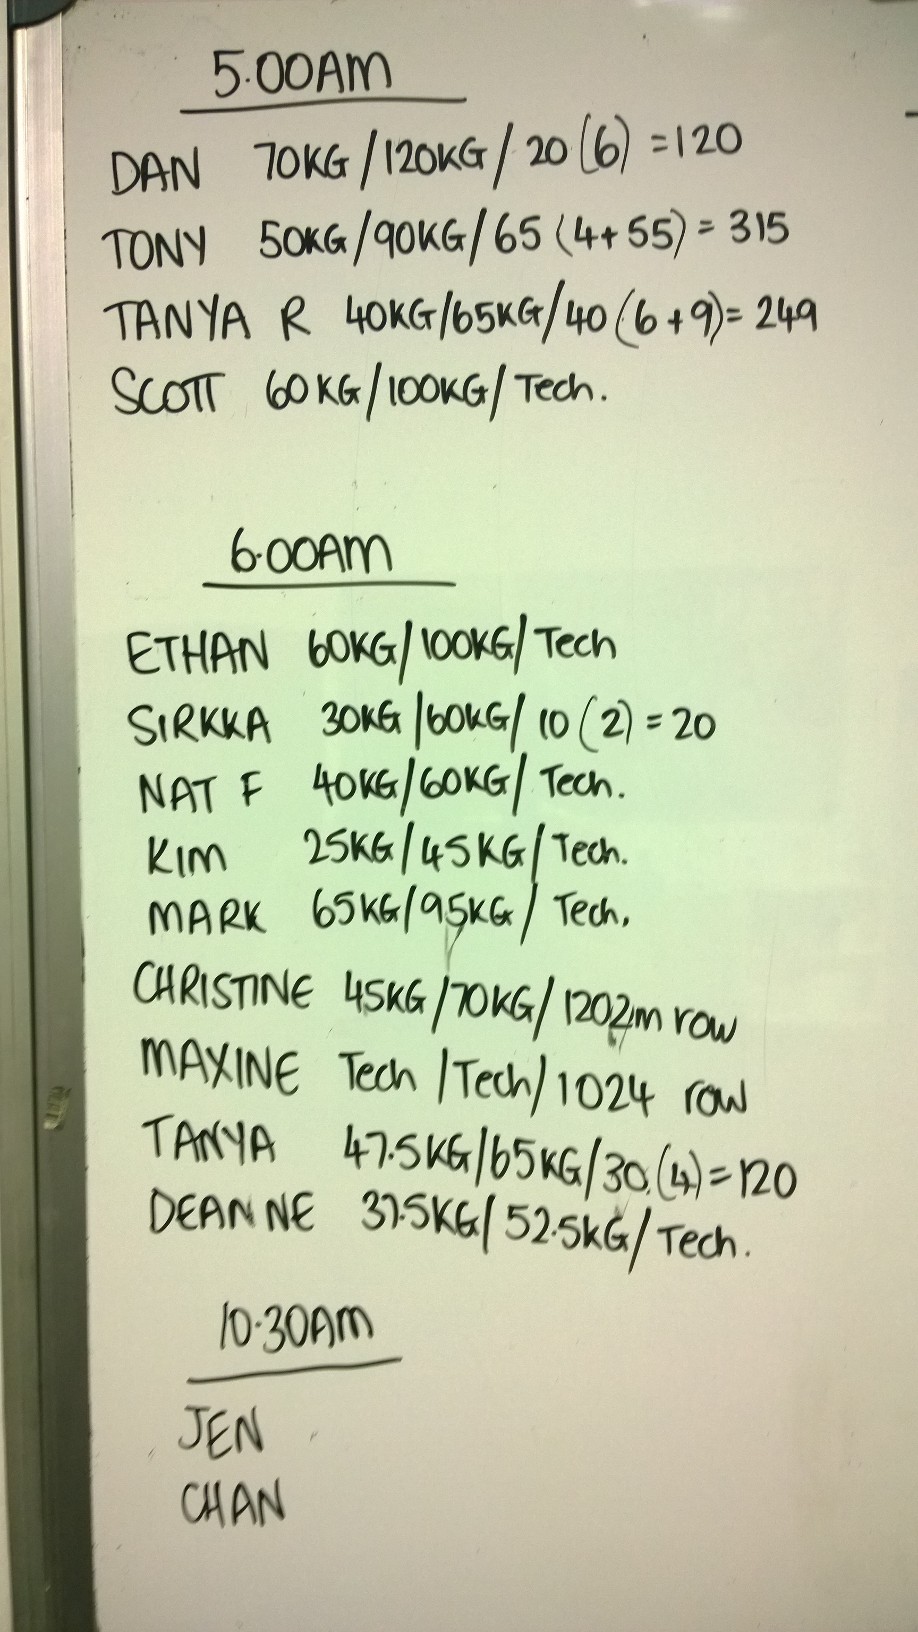 5.00AM
DAN 70KG/120KG/ 20(6) =120
TONY 50KG/90KG/65 (4+55) = 315
TANYA R 40KG/65KG/40(6+9)= 249
SCOTT 60KG/100KG/Tech.
6.00AM
ETHAN 60KG/100KG/Tech
SIRKKA 30KG/60KG/ 10 (2) = 20
NAT F 40KG/60KG/ Tech.
KIM 25KG/45KG/Tech.
MARK 65KG/95KG/ Tech.
CHRISTINE 45KG/70KG/1202m row
MAXINE Tech /Tech/1024 row
TANYA 47.5KG/65KG/30.(4)=120
DEANNE 37.5KG/52.5KG/Tech.
10.30AM
JEN
CHAN